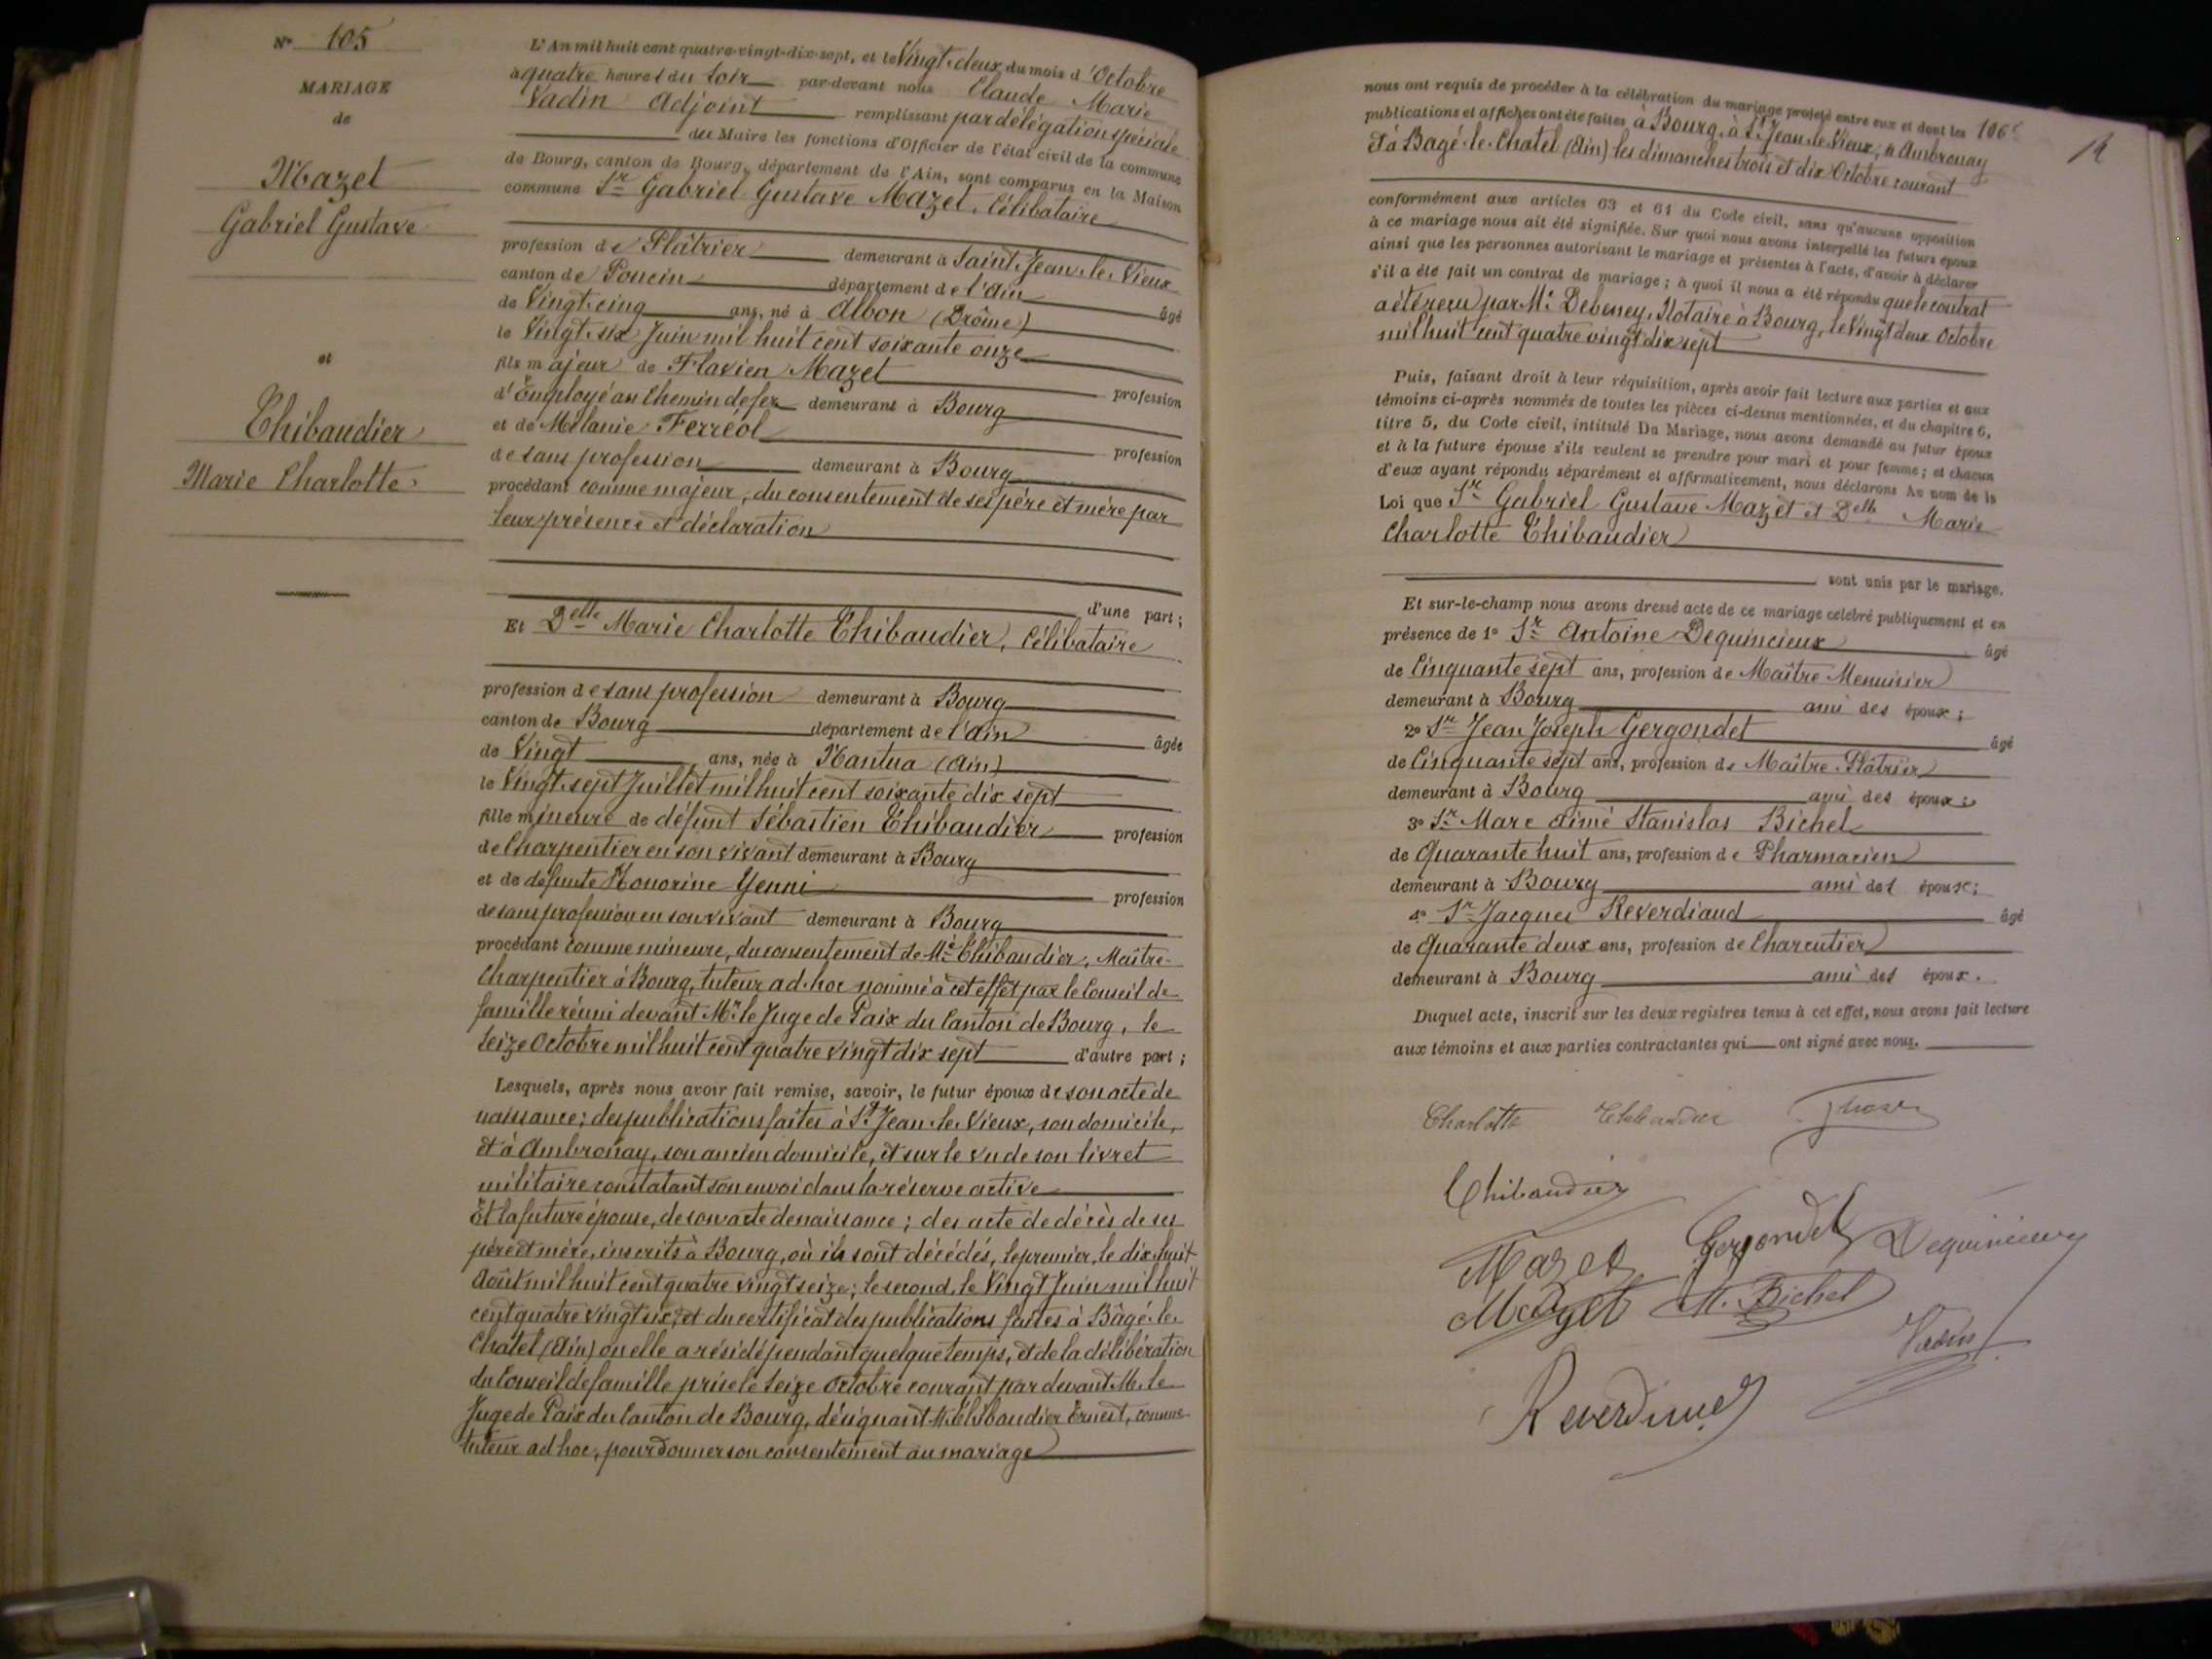 N° 105
MARIAGE
de
Mazet
Gabriel Gustave
et
Thibaudier
Marie Charlotte
L'An mil huit cent quatre-vingt-dix-sept, et le Vingt-deux du mois d'Octobre
à quatre heures du soir par-devant nous Claude Marie
Vadin Adjoint remplissant par délégation spéciale
du Maire les fonctions d'Officier de l'état civil de la commune
de Bourg, canton de Bourg, département de l'Ain, sont comparus en la Maison
commune Sr Gabriel Gustave Mazet, Célibataire
profession de Plâtrier demeurant à Saint-Jean-le-Vieux
canton de Poncin département de l'Ain
âgé
de Vingt-cinq ans, né à Albon (Drôme)
le Vingt-six Juin mil huit cent soixante onze
fils majeur de Flavien Mazet profession
d'Employé au Chemin de fer demeurant à Bourg
et de Mélanie Ferréol profession
de sans profession demeurant à Bourg
procédant comme majeur, du consentement de ses père et mère par
leur présence et déclaration
d'une part ;
Et Delle Marie Charlotte Thibaudier, Célibataire
profession de sans profession demeurant à Bourg
canton de Bourg département de l'Ain âgée
de Vingt ans, née à Nantua (Ain)
le Vingt-sept Juillet mil huit cent soixante dix sept
fille mineure de défunt Sébastien Thibaudier profession
de Charpentier en son vivant demeurant à Bourg
et de défunte Honorine Yenni profession
de sans profession en son vivant demeurant à Bourg
procédant comme mineure, du consentement de Mr Thibaudier, Maître-
Charpentier à Bourg, tuteur ad-hoc nommé à cet effet par le Conseil de
famille réuni devant Mr le Juge de Paix du Canton de Bourg, le
Seize Octobre mil huit cent quatre vingt dix sept d'autre part ;
Lesquels, après nous avoir fait remise, savoir, le futur époux de son acte de
naissance ; des publications faites à St Jean-le-Vieux, son domicile,
et à Ambronay, son ancien domicile, et sur le vu de son livret
militaire constatant son envoi dans la réserve active
Et la future épouse, de son acte de naissance ; des acte de décès de ses
père et mère, inscrits à Bourg, où ils sont décédés, le premier, le dix-huit
Août mil huit cent quatre vingt seize ; le second, le Vingt Juin mil huit
cent quatre vingt six ; et du certificat des publications faites à Bâgé-le-
Chatel (Ain) où elle a résidé pendant quelque temps, et de la délibération
du Conseil de famille prise le seize Octobre courant par devant M. le
Juge de Paix du Canton de Bourg, désignant Mr Thibaudier Ernest, comme
tuteur ad hoc, pour donner son consentement au mariage
nous ont requis de procéder à la célébration du mariage projeté entre eux et dont les 106
publications et affiches ont été faites à Bourg, à St Jean-le-Vieux, à Ambronay
et à Bagé-le-Chatel (Ain) les dimanches trois et dix Octobre courant
conformément aux articles 63 et 64 du Code civil, sans qu'aucune opposition
à ce mariage nous ait été signifiée. Sur quoi nous avons interpellé les futurs époux
ainsi que les personnes autorisant le mariage et présentes à l'acte, d'avoir à déclarer
s'il a été fait un contrat de mariage ; à quoi il nous a été répondu que le contrat
a été reçu par Me Debeney, Notaire à Bourg, le Vingt deux Octobre
mil huit cent quatre vingt dix sept
Puis, faisant droit à leur réquisition, après avoir fait lecture aux parties et aux
témoins ci-après nommés de toutes les pièces ci-dessus mentionnées, et du chapitre 6,
titre 5, du Code civil, intitulé Du Mariage, nous avons demandé au futur époux
et à la future épouse s'ils veulent se prendre pour mari et pour femme ; et chacun
d'eux ayant répondu séparément et affirmativement, nous déclarons Au nom de la
Loi que Sr Gabriel Gustave Mazet et Delle Marie
Charlotte Thibaudier
sont unis par le mariage.
Et sur-le-champ nous avons dressé acte de ce mariage célébré publiquement et en
présence de 1° Sr Antoine Dequincieux âgé
de Cinquante sept ans, profession de Maître Menuisier
demeurant à Bourg ami des époux ;
2° Sr Jean Joseph Gergondet âgé
de Cinquante sept ans, profession de Maître Plâtrier
demeurant à Bourg ami des époux ;
3° Sr Marc Aimé Stanislas Bichel
de Quarante huit ans, profession de Pharmacien
demeurant à Bourg ami des époux ;
4° Sr Jacques Reverdiaud âgé
de Quarante deux ans, profession de Charcutier
demeurant à Bourg ami des époux.
Duquel acte, inscrit sur les deux registres tenus à cet effet, nous avons fait lecture
aux témoins et aux parties contractantes qui ont signé avec nous.
Charlotte Thibaudier
Thibaudier
Mazet Gergondet Dequincieux
Mazet M. Bichel
Vadin